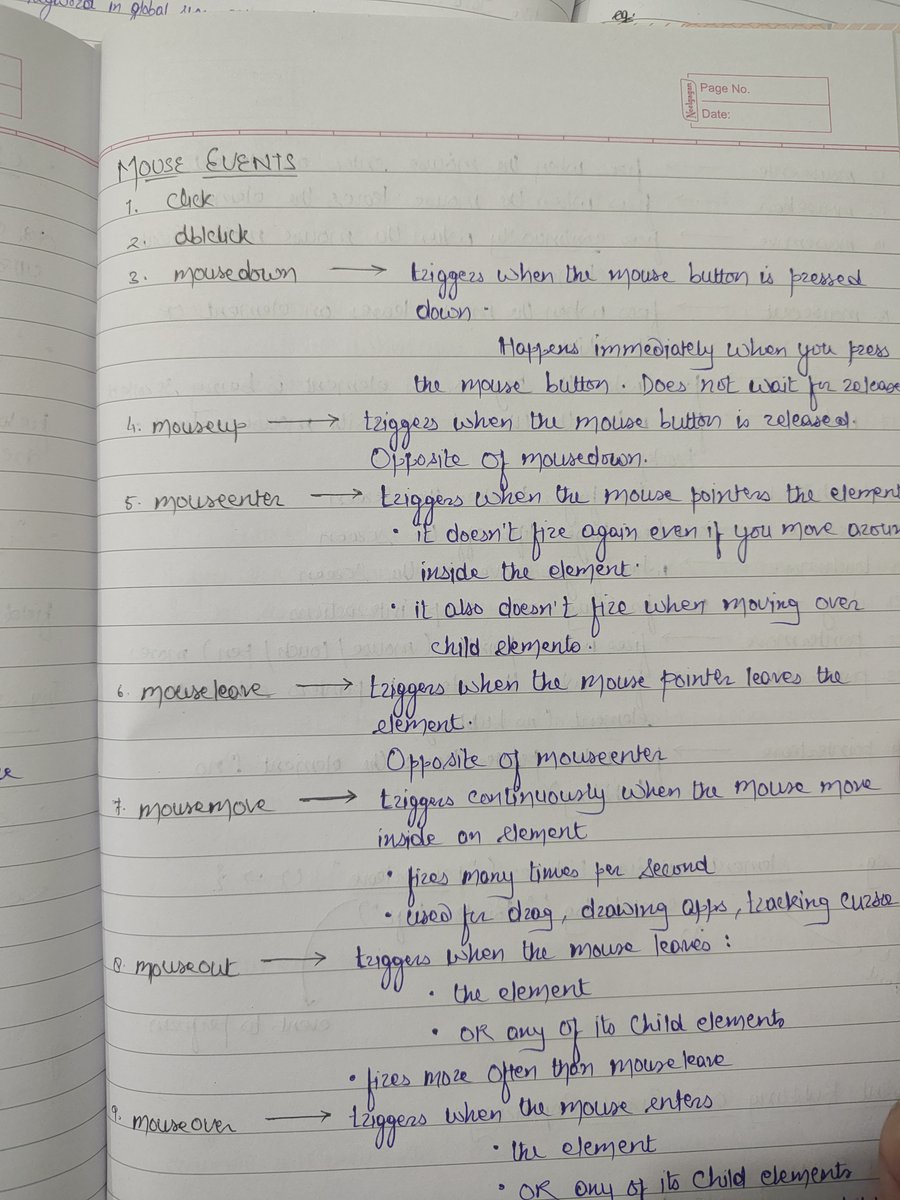 in global
eg:
Neelgagan
Page No.
Date:
MOUSE EVENTS
1. click
2. dblclick
3. mousedown → triggers when the mouse button is pressed
down.
Happens immediately when you press
the mouse button. Does not wait for release
4. mouseup → triggers when the mouse button is released.
Opposite of mousedown.
5. mouseenter → triggers when the mouse pointers the element
• it doesn't fire again even if you move aroun
inside the element.
• it also doesn't fire when moving over
child elements.
6. mouseleave → triggers when the mouse pointer leaves the
element.
Opposite of mouseenter
7. mousemove → triggers continuously when the mouse move
inside an element
• fires many times per second
• used for drag, drawing apps, tracking curso
8. mouseout → triggers when the mouse leaves:
• the element
• OR any of its child elements
• fires more often than mouseleave
9. mouseover → triggers when the mouse enters
• the element
• OR any of its child elements